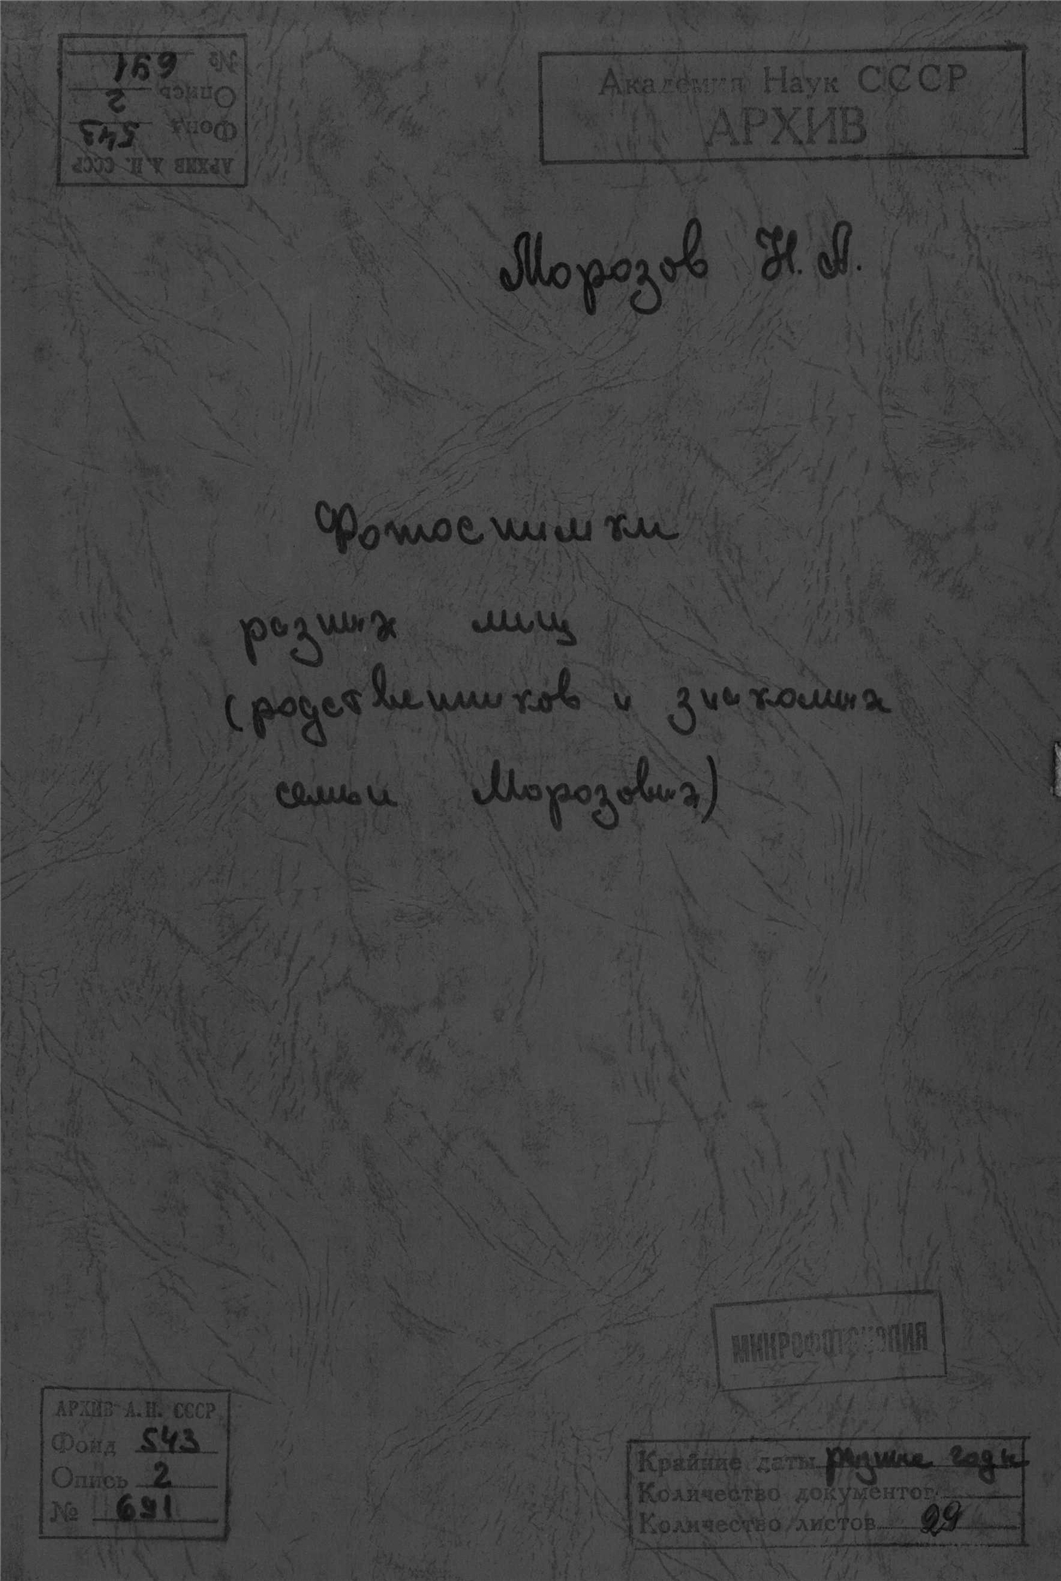 АРХИВ А.Н. СССР
Фонд 543
Опись 2
№ 691
Академия Наук СССР
АРХИВ
Морозов Н.А.
Фотоснимки
разных лиц
(родственников и знакомых
семьи Морозовых)
МИКРОФОТОКОПИЯ
АРХИВ А.Н. СССР
Фонд 543
Опись 2
№ 691
Крайние даты разные годы
Количество документов
Количество листов 29